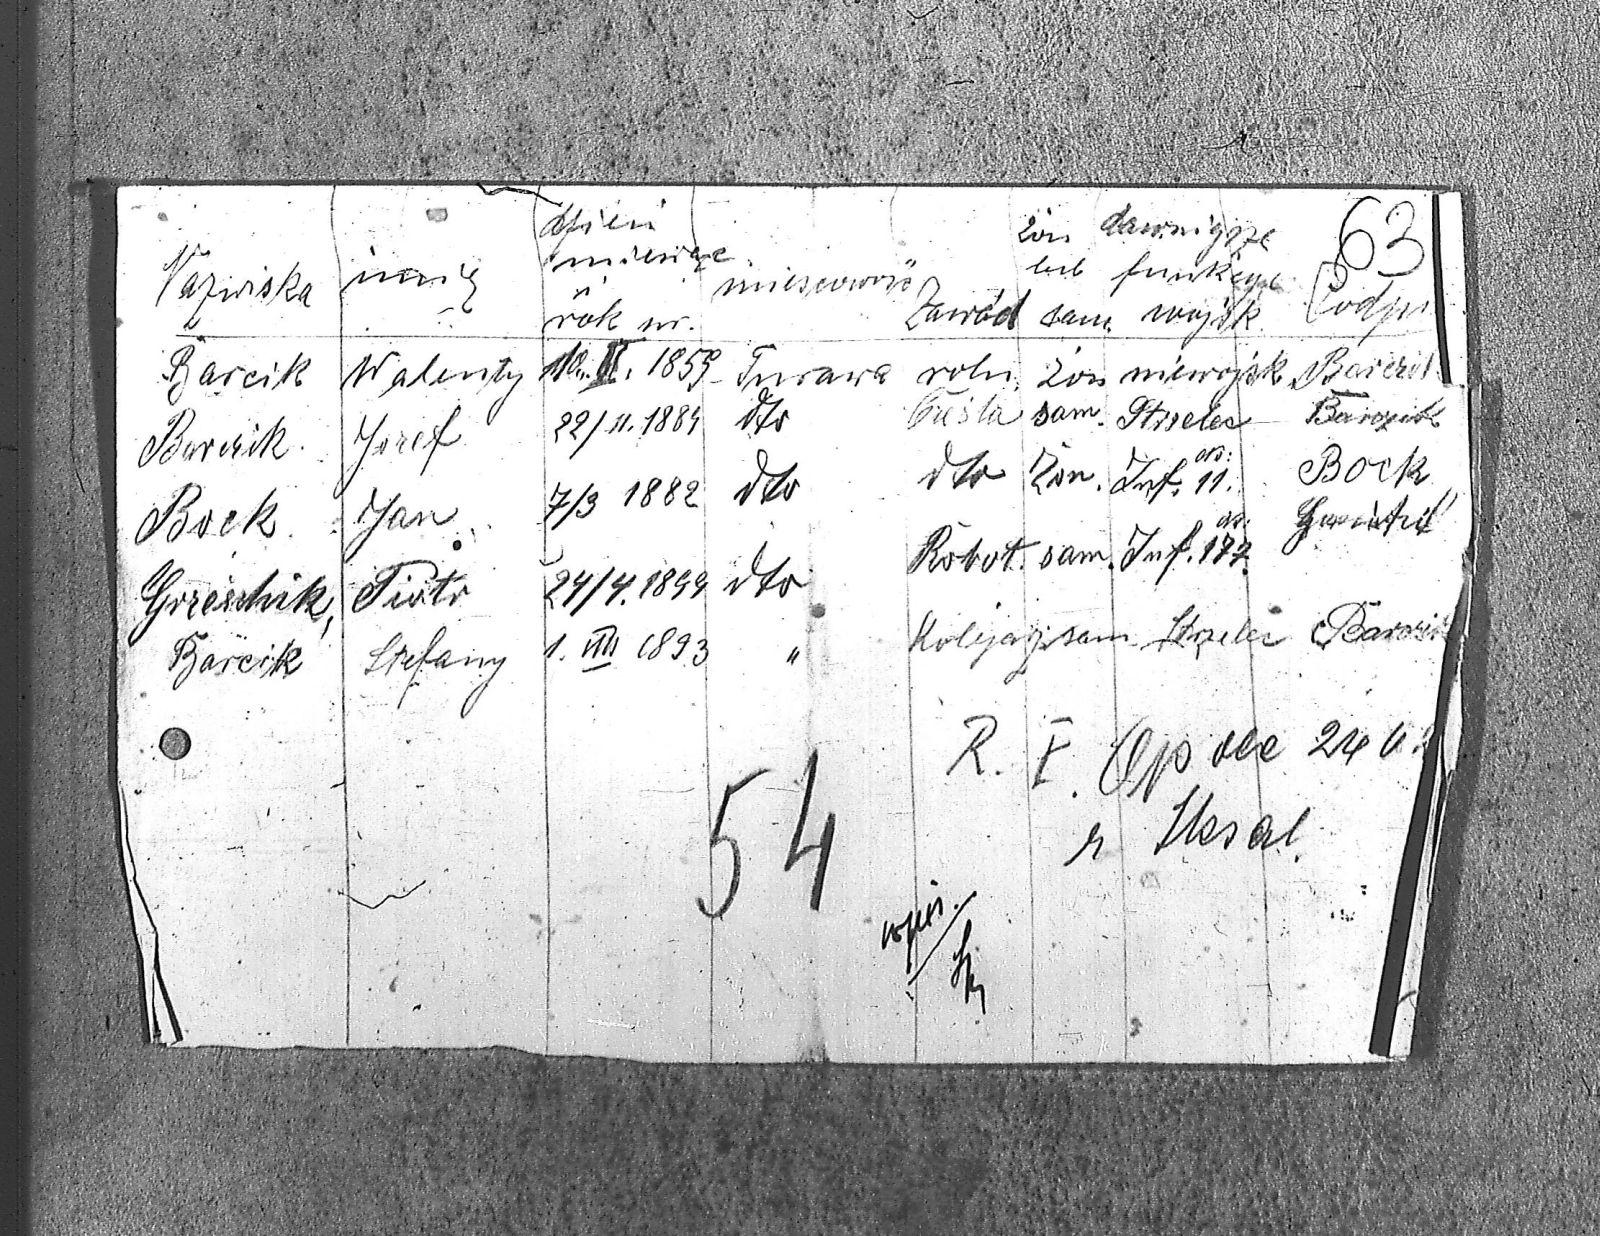 63
Nazwiska imię dzień miesiąc rok ur. miescowość Zawód żon lub sam. dawnigsze funkcye wojsk. Podpis
Barcik Walenty 10. II. 1859 Turawa roln. żon niewojsk. Barcik
Barcik Jozef 22/11. 1884 dto Cieśla sam. Strzelec Barcik
Bock Jan 7/3 1882 dto dto Żon. Inf. 11. Bock
Greschik, Piotr 24/4. 1899 dto Robot. sam. Inf.
Barcik Stefany 1. VIII 1893 " Kolejarz sam. Strzelec Barcik
R. I. Opole
54